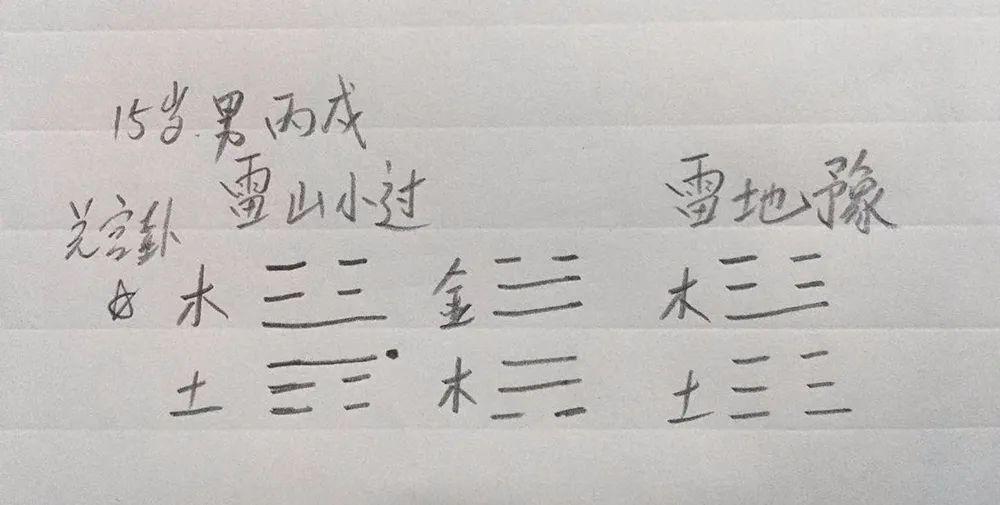 15岁.男 丙戌
雷山小过 雷地豫
兑宫卦
木 金 木
土 木 土